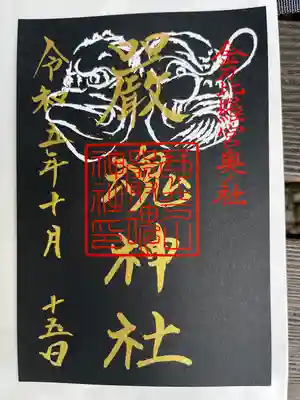 金刀比羅宮奥社
嚴魂神社
令和五年十月
十五日